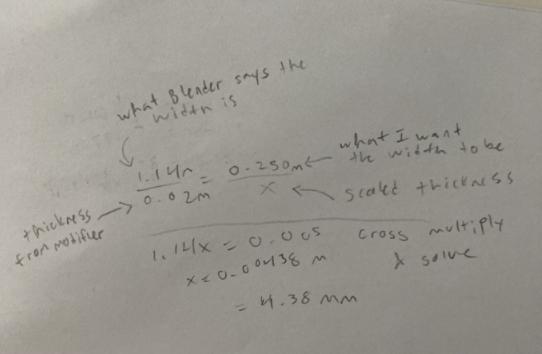 what Blender says the
width is
1.14m = 0.250m
0.02m x
what I want
the width to be
scaled thickness
thickness
from modifier
1.14x = 0.005 cross multiply
x = 0.00438 m & solve
= 4.38 mm